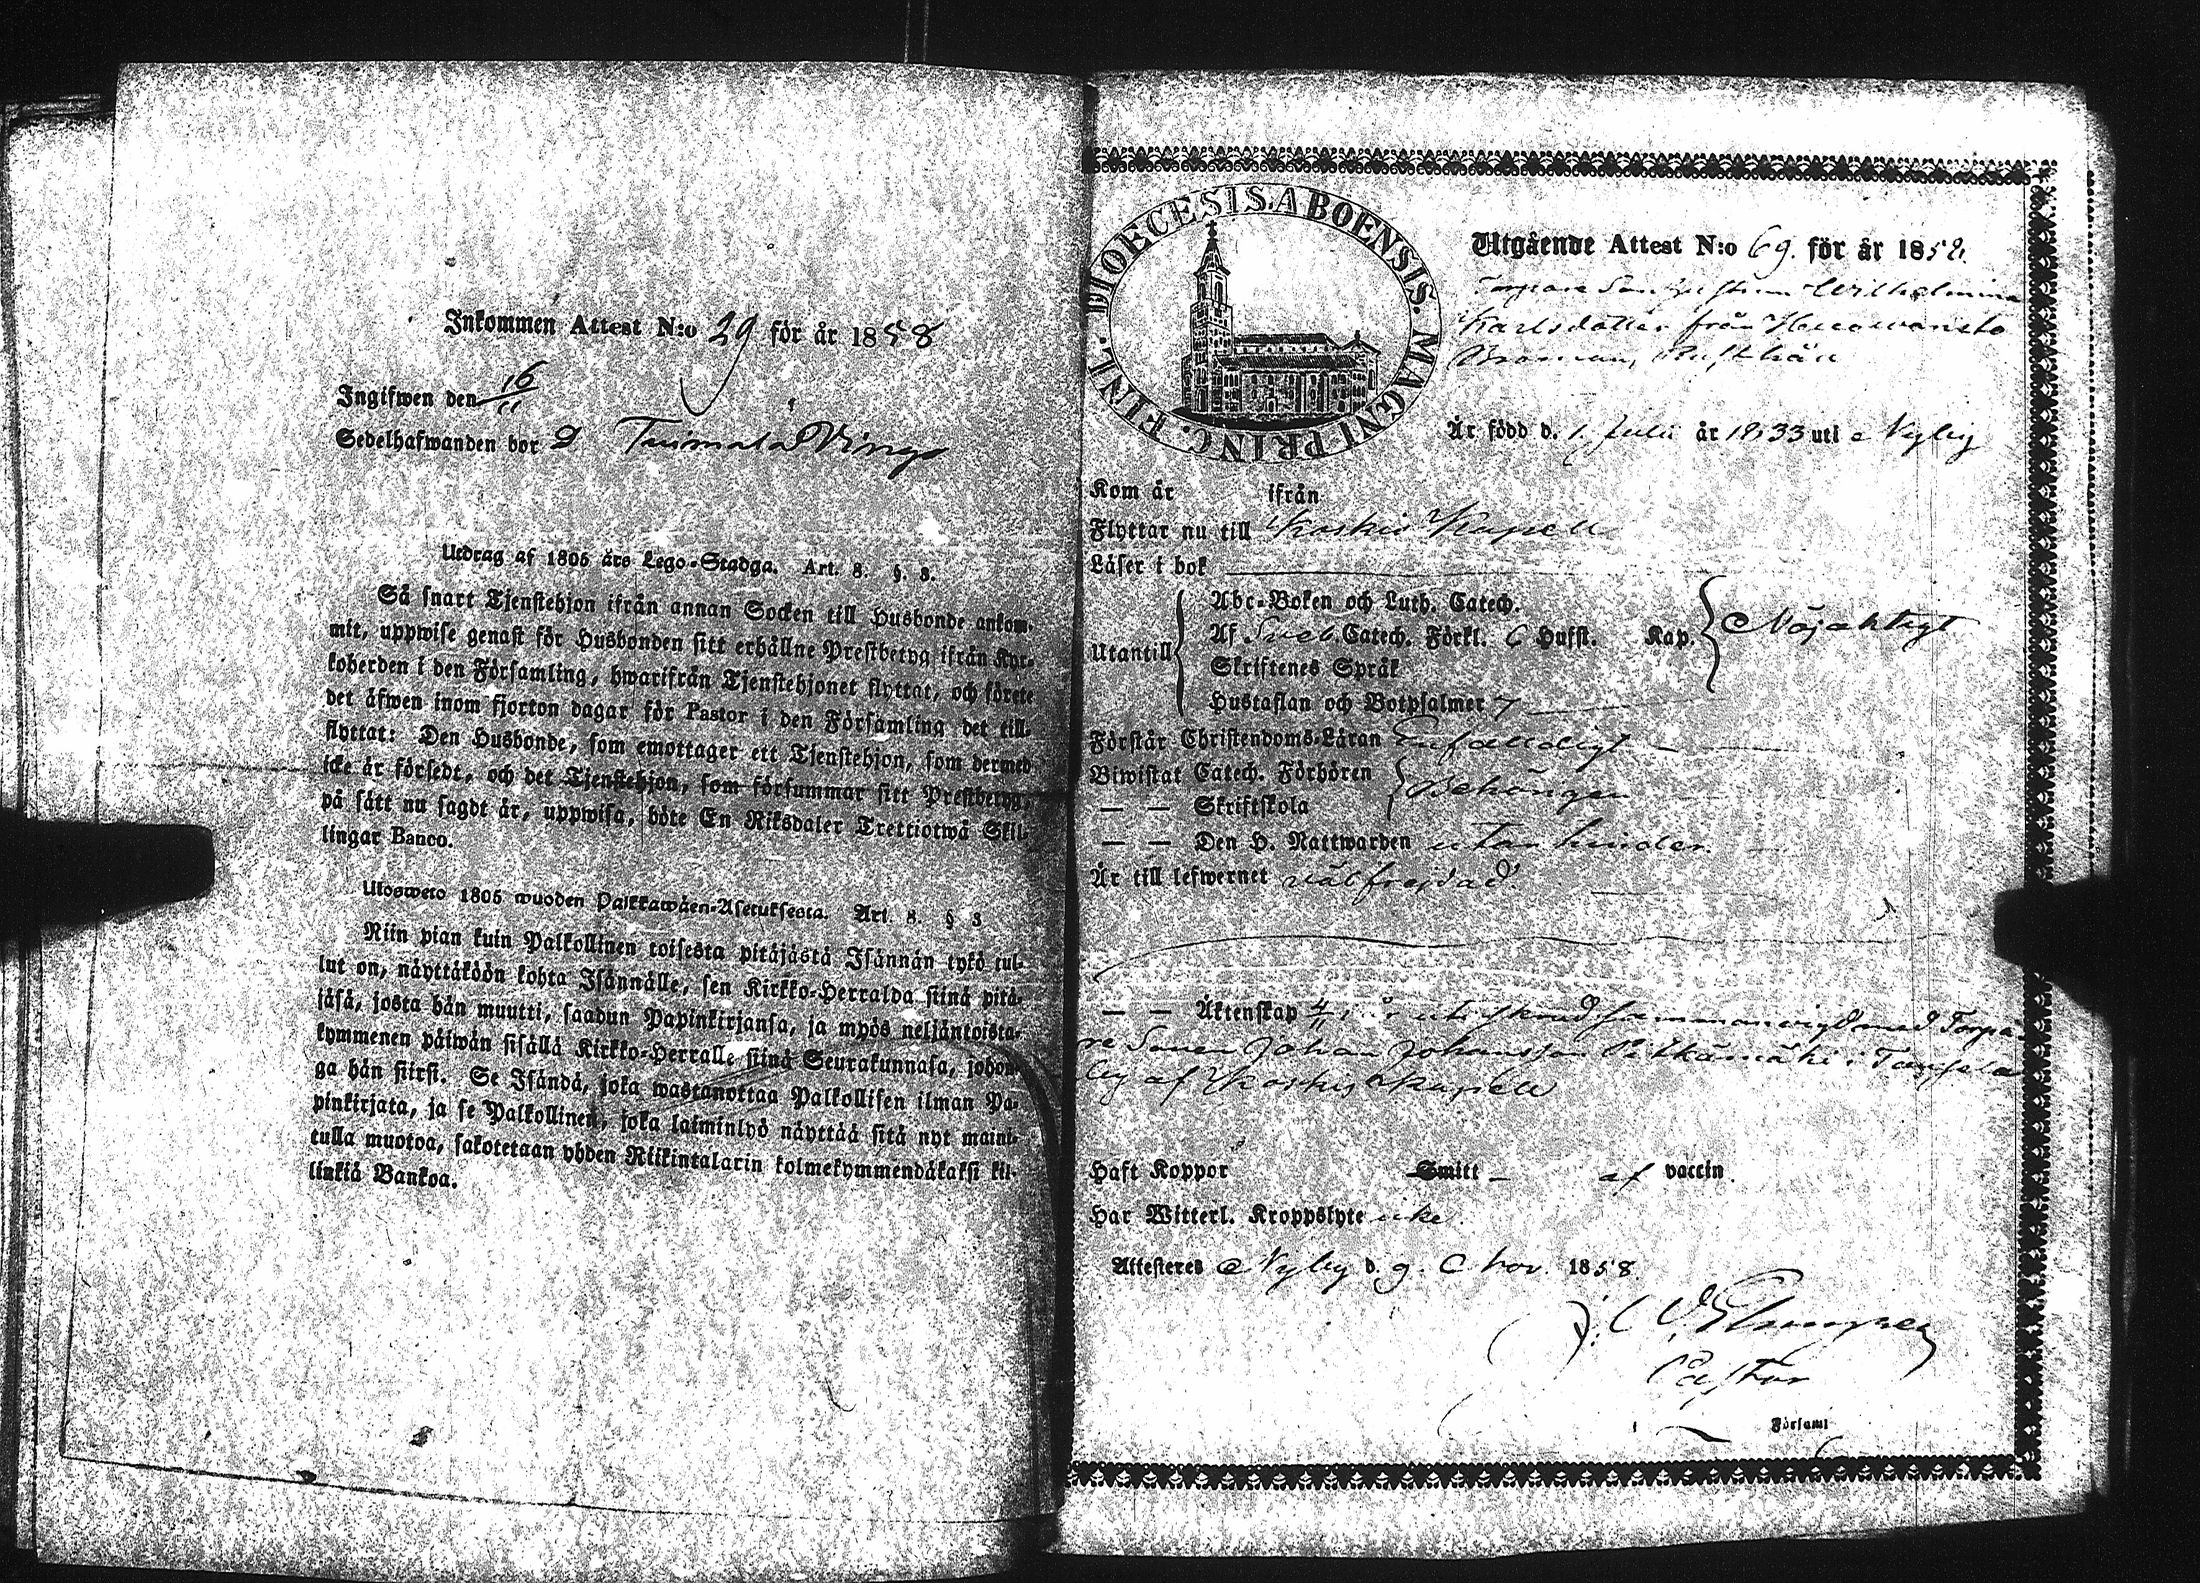 Inkommen Attest N:o 29 för år 1858
Ingifwen den 16/11
Sedelhafwanden bor
Utdrag af 1805 års Lego-Stadga. Art. 8. §. 3.
Så snart Tjenstehjon ifrån annan Socken till Husbonde ankom-
mit, uppwise genast för Husbonden sitt erhållne Prestbetyg ifrån Kyr-
koherden i den Församling, hwarifrån Tjenstehjonet flyttat, och förete
det äfwen inom fjorton dagar för Pastor i den Församling det till-
flyttat: Den Husbonde, som emottager ett Tjenstehjon, som dermed
icke är försedt, och det Tjenstehjon, som försummar sitt Prestbetyg,
på sätt nu sagdt är, uppwisa, böte En Riksdaler Trettiotwå Skil-
lingar Banco.
Ulosweto 1805 wuoden Palkkawäen-Asetuksesta. Art. 8. § 3
Niin pian kuin Palkollinen toisesta pitäjästä Isännän tykö tul-
lut on, näyttäköön kohta Isännälle, sen Kirkko-Herralda siinä pitä-
jäsä, josta hän muutti, saadun Papinkirjansa, ja myös neljäntoista-
kymmenen päiwän sisällä Kirkko-Herralle siinä Seurakunnasa, johon-
ga hän siirsi. Se Isändä, joka wastanottaa Palkollisen ilman Pa-
pinkirjata, ja se Palkollinen, joka laiminlyö näyttää sitä nyt maini-
tulla muotoa, sakotetaan yhden Riikintalarin kolmekymmendäkaksi kil-
linkiä Bankoa.
DIOECESIS. ABOENSIS. MAGNI PRINC. FINL.
Utgående Attest N:o 69. för år 1858.
Wilhelmina
Karlsdotter från
Är född d. 1. Julii år 1833 uti Nyby
Kom år ifrån
Flyttar nu till Koskis Kapell
Läser i bok
Utantill
Abc-Boken och Luth. Catech.
Af Sveb Catech. Förkl. 6 Hufst. Kap. Nöjaktigt
Skriftenes Språk
Hustaflan och Botpsalmer 7
Förstår Christendoms-Läran Enfaldigt
Biwistat Catech. Förhören
— — Skriftskola Behörigen
— — Den H. Nattwarden utan hinder.
Är till lefwernet väl frejdad.
— — Äktenskap 4/11 i år sammanvigd med Torpa-
re Sonen Johan Johansson Pitkämäki i
by af Koskis Kapell
Haft Koppor Smitt af vaccin.
Har Witterl. Kroppslyte icke.
Attesteres Nyby d. 9. Nov. 1858.
Pastor
i Församl